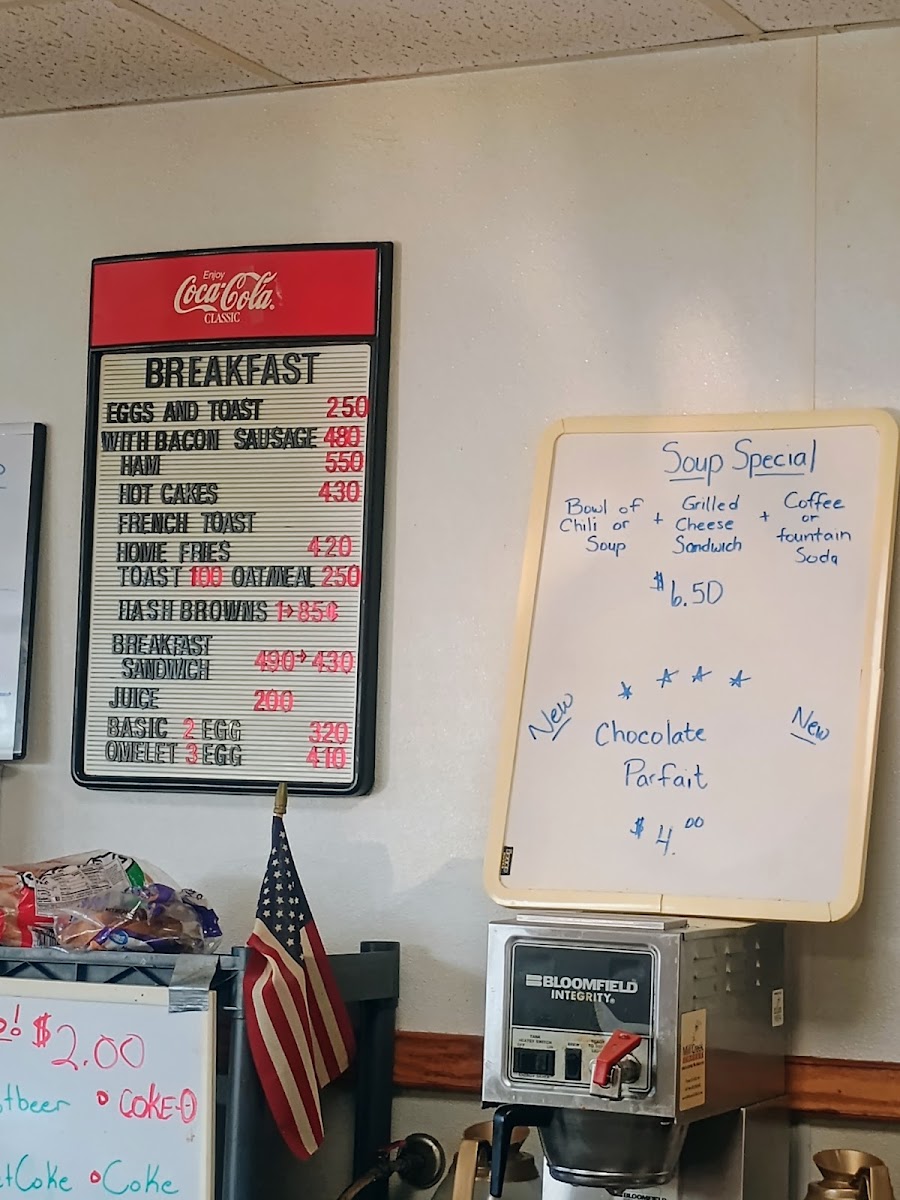 Enjoy
Coca-Cola
CLASSIC
BREAKFAST
EGGS AND TOAST 250
WITH BACON SAUSAGE 480
HAM 550
HOT CAKES 430
FRENCH TOAST
HOME FRIES 420
TOAST 100 OATMEAL 250
HASH BROWNS 1→85¢
BREAKFAST
SANDWICH 490→430
JUICE 200
BASIC 2 EGG 320
OMELET 3 EGG 410
Soup Special
Bowl of Chili or Soup + Grilled Cheese Sandwich + Coffee or fountain Soda
$6.50
New Chocolate New
Parfait
$4.00
BLOOMFIELD
INTEGRITY
$2.00
COKE-0
Coke Coke
BLOOMFIELD